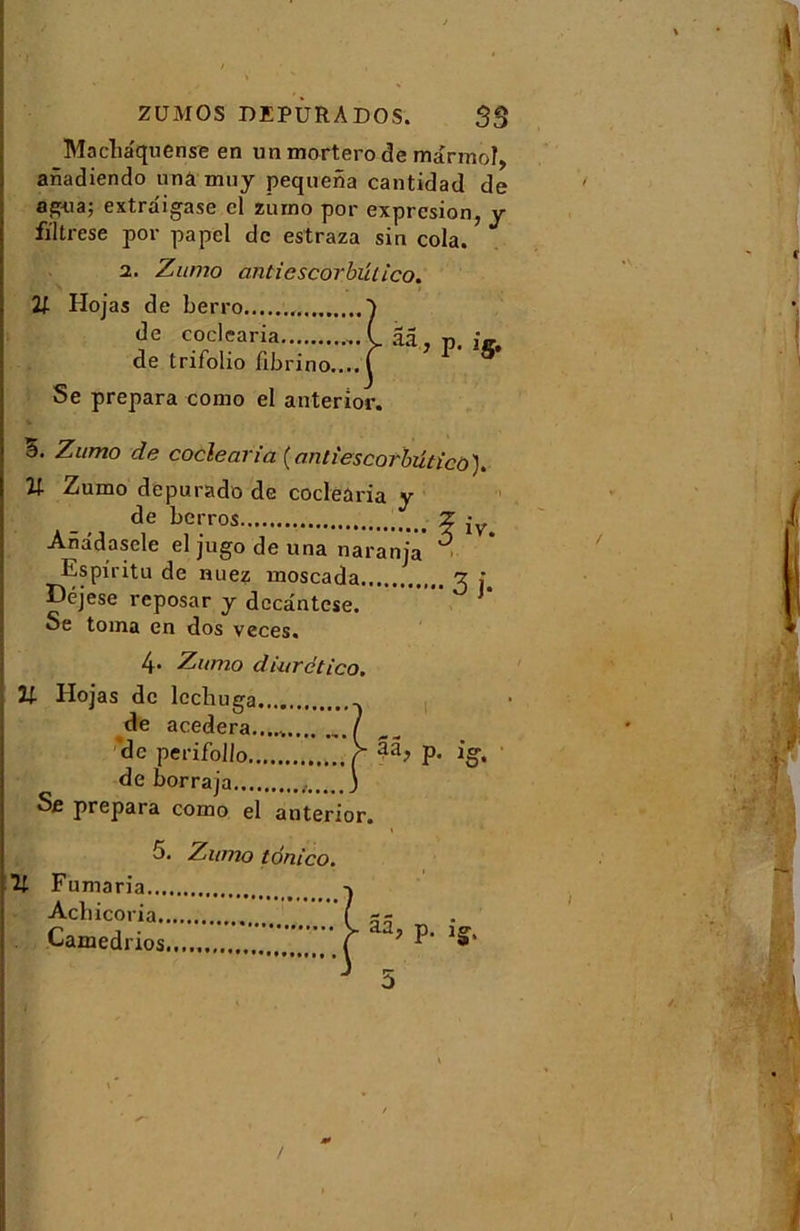 ZUMOS DEPURADOS. 33
Macháquense en un mortero de mármol,
añadiendo una muy pequeña cantidad de
agua; extráigase el zumo por expresion, y
fíltrese por papel de estraza sin cola.
2. Zumo antiescorbútico.
♃ Hojas de berro.................
de coclearia............ āā, p. ig.
de trifolio fibrino....
Se prepara como el anterior.
3. Zumo de coclearia (antiescorbútico).
♃ Zumo depurado de coclearia y
de berros........................... ℥ iv.
Añádasele el jugo de una naranja
Espíritu de nuez moscada........... ʒ j.
Déjese reposar y decántese.
Se toma en dos veces.
4. Zumo diurético.
♃ Hojas de lechuga.............
de acedera............
de perifollo............. āā, p. ig.
de borraja...............
Se prepara como el anterior.
5. Zumo tónico.
♃ Fumaria..........................
Achicoria........................ āā, p. ig.
Camedrios........................
5